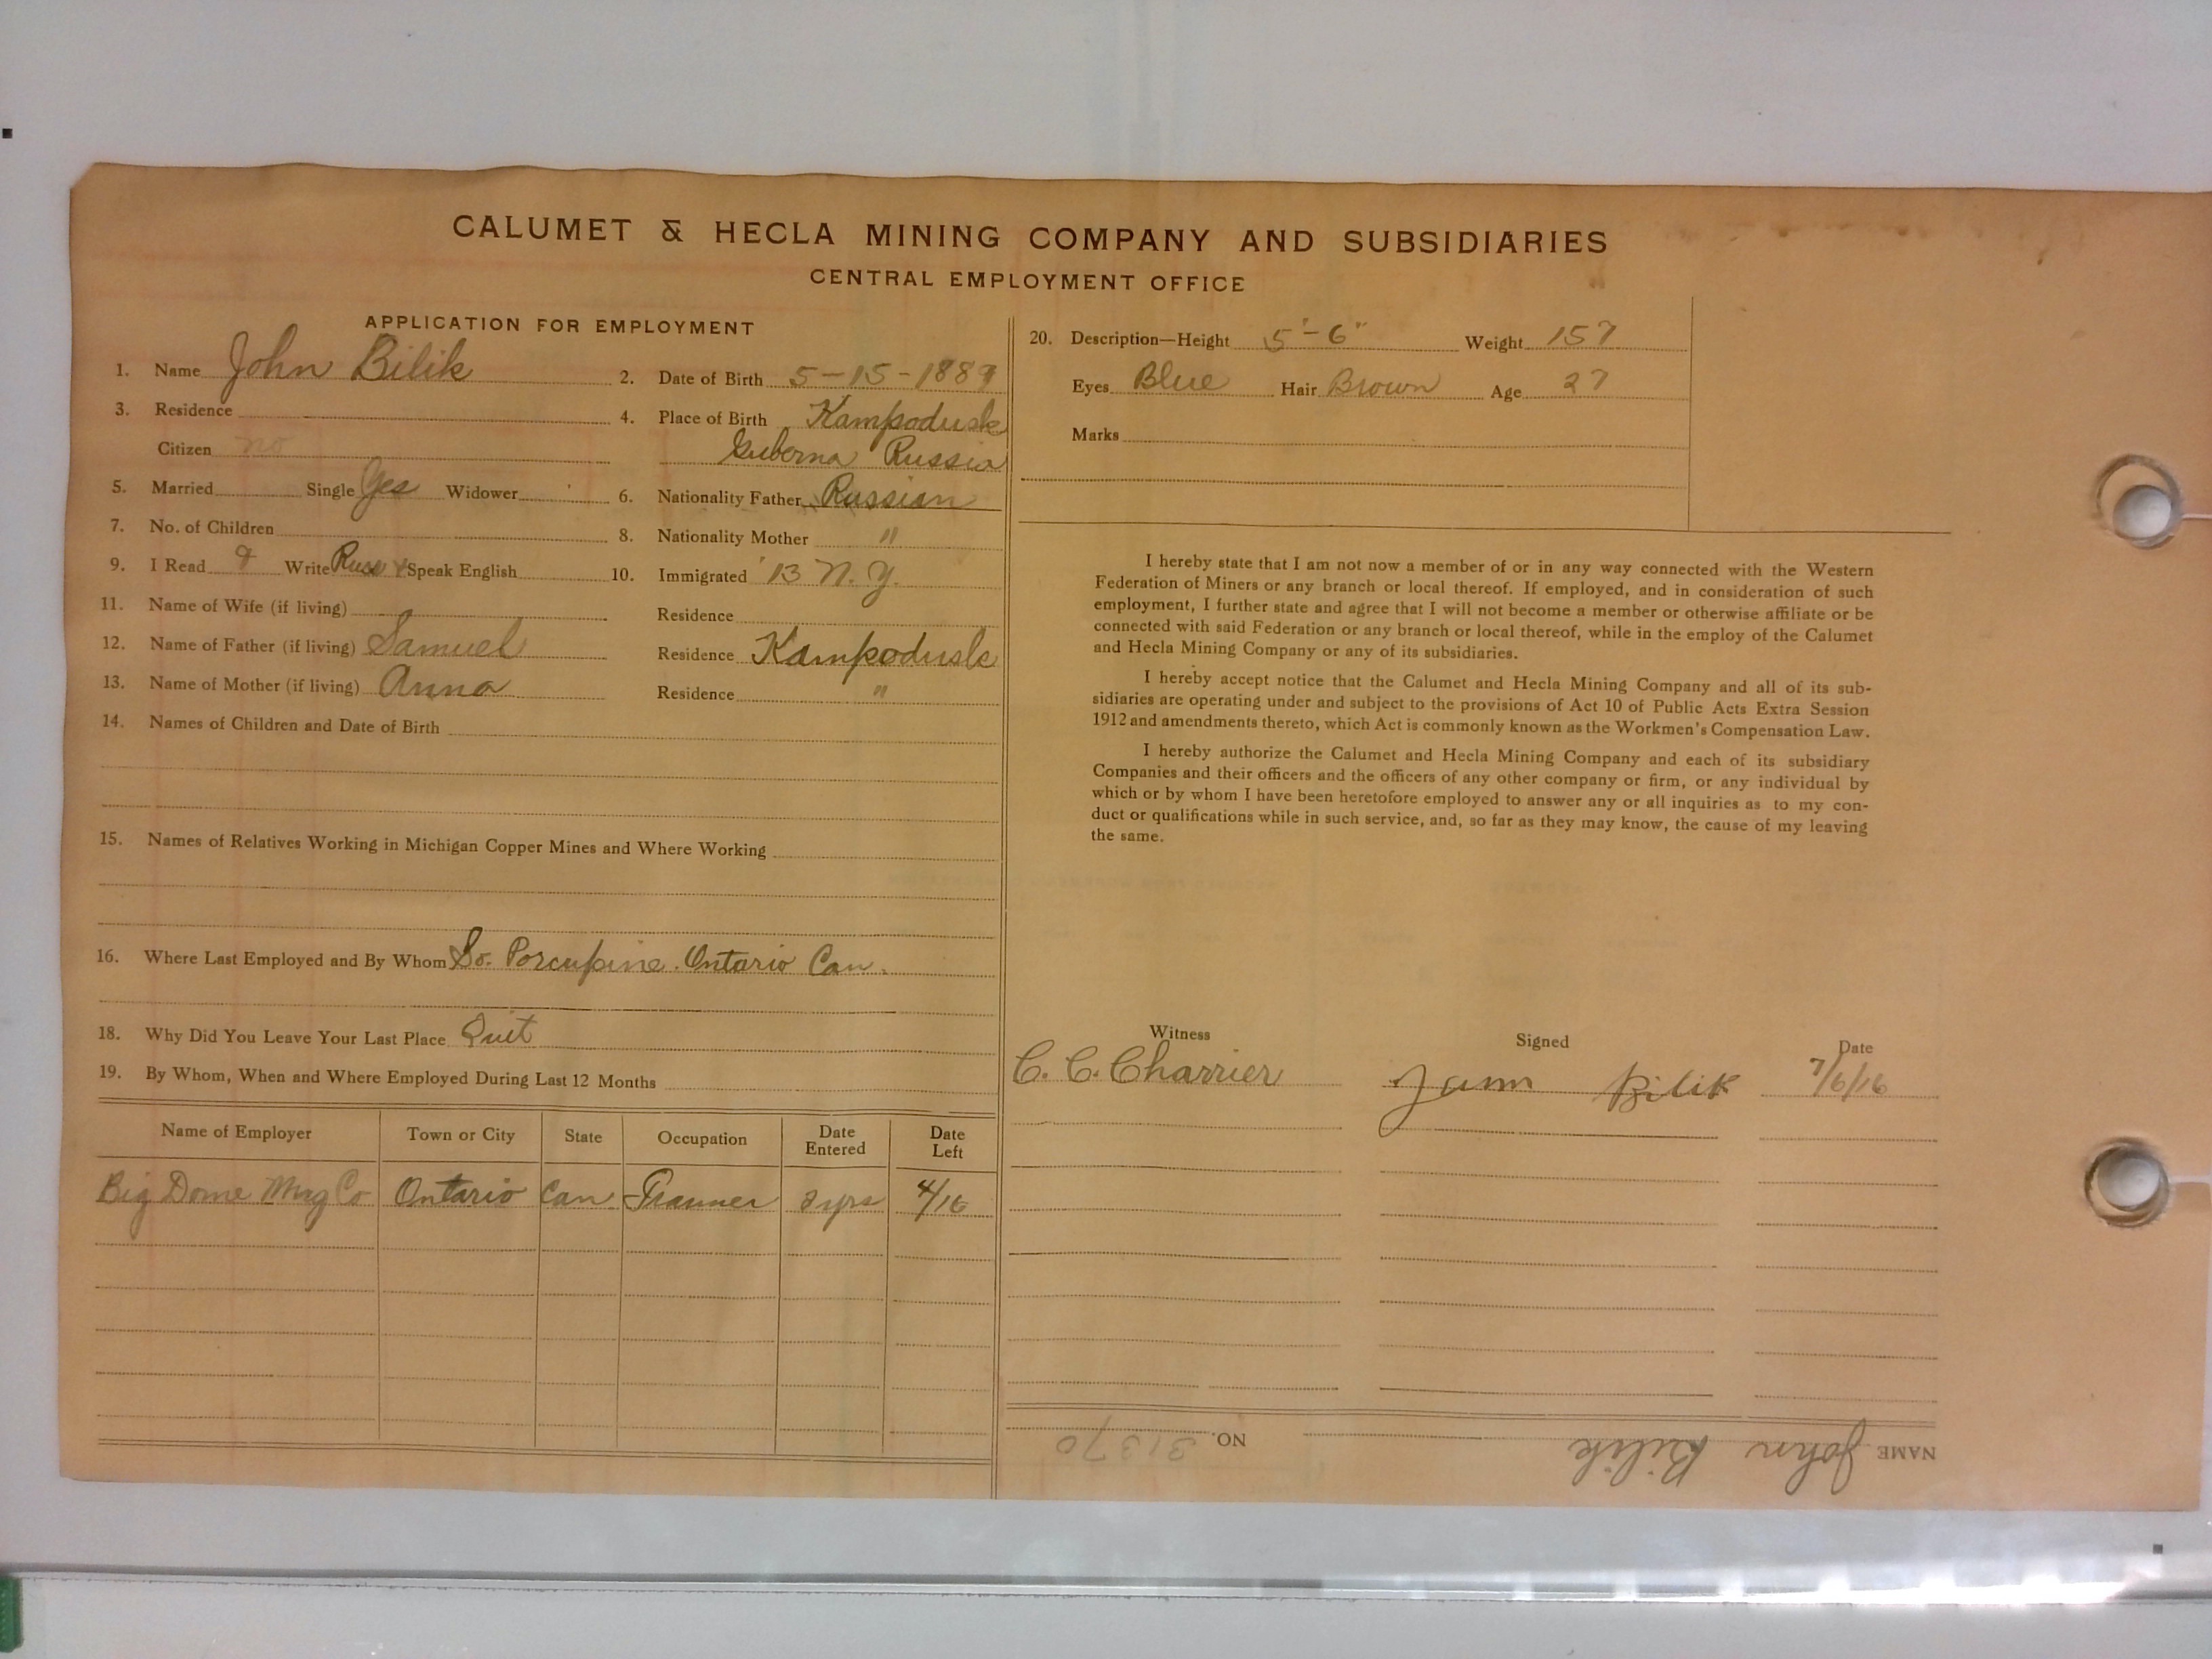 CALUMET & HECLA MINING COMPANY AND SUBSIDIARIES
CENTRAL EMPLOYMENT OFFICE
APPLICATION FOR EMPLOYMENT
1. Name John Bilik 2. Date of Birth 5-15-1889
3. Residence 4. Place of Birth Kampodusk
Citizen no Guberna Russia
5. Married Single Yes Widower 6. Nationality Father Russian
7. No. of Children 8. Nationality Mother "
9. I Read & Write Russ & Speak English 10. Immigrated '13 N.Y.
11. Name of Wife (if living) Residence
12. Name of Father (if living) Samuel Residence Kampodusk
13. Name of Mother (if living) Anna Residence "
14. Names of Children and Date of Birth
15. Names of Relatives Working in Michigan Copper Mines and Where Working
16. Where Last Employed and By Whom So. Porcupine. Ontario Can.
18. Why Did You Leave Your Last Place Quit
19. By Whom, When and Where Employed During Last 12 Months
Name of Employer Town or City State Occupation Date Entered Date Left
Big Dome Mng Co Ontario Can. Trammer 2 yrs 4/16
20. Description—Height 5'-6" Weight 157
Eyes Blue Hair Brown Age 27
Marks
I hereby state that I am not now a member of or in any way connected with the Western
Federation of Miners or any branch or local thereof. If employed, and in consideration of such
employment, I further state and agree that I will not become a member or otherwise affiliate or be
connected with said Federation or any branch or local thereof, while in the employ of the Calumet
and Hecla Mining Company or any of its subsidiaries.
I hereby accept notice that the Calumet and Hecla Mining Company and all of its sub-
sidiaries are operating under and subject to the provisions of Act 10 of Public Acts Extra Session
1912 and amendments thereto, which Act is commonly known as the Workmen's Compensation Law.
I hereby authorize the Calumet and Hecla Mining Company and each of its subsidiary
Companies and their officers and the officers of any other company or firm, or any individual by
which or by whom I have been heretofore employed to answer any or all inquiries as to my con-
duct or qualifications while in such service, and, so far as they may know, the cause of my leaving
the same.
Witness Signed Date
C. C. Charrier Jann Bilik 7/6/16
NAME John Bilik NO. 31370